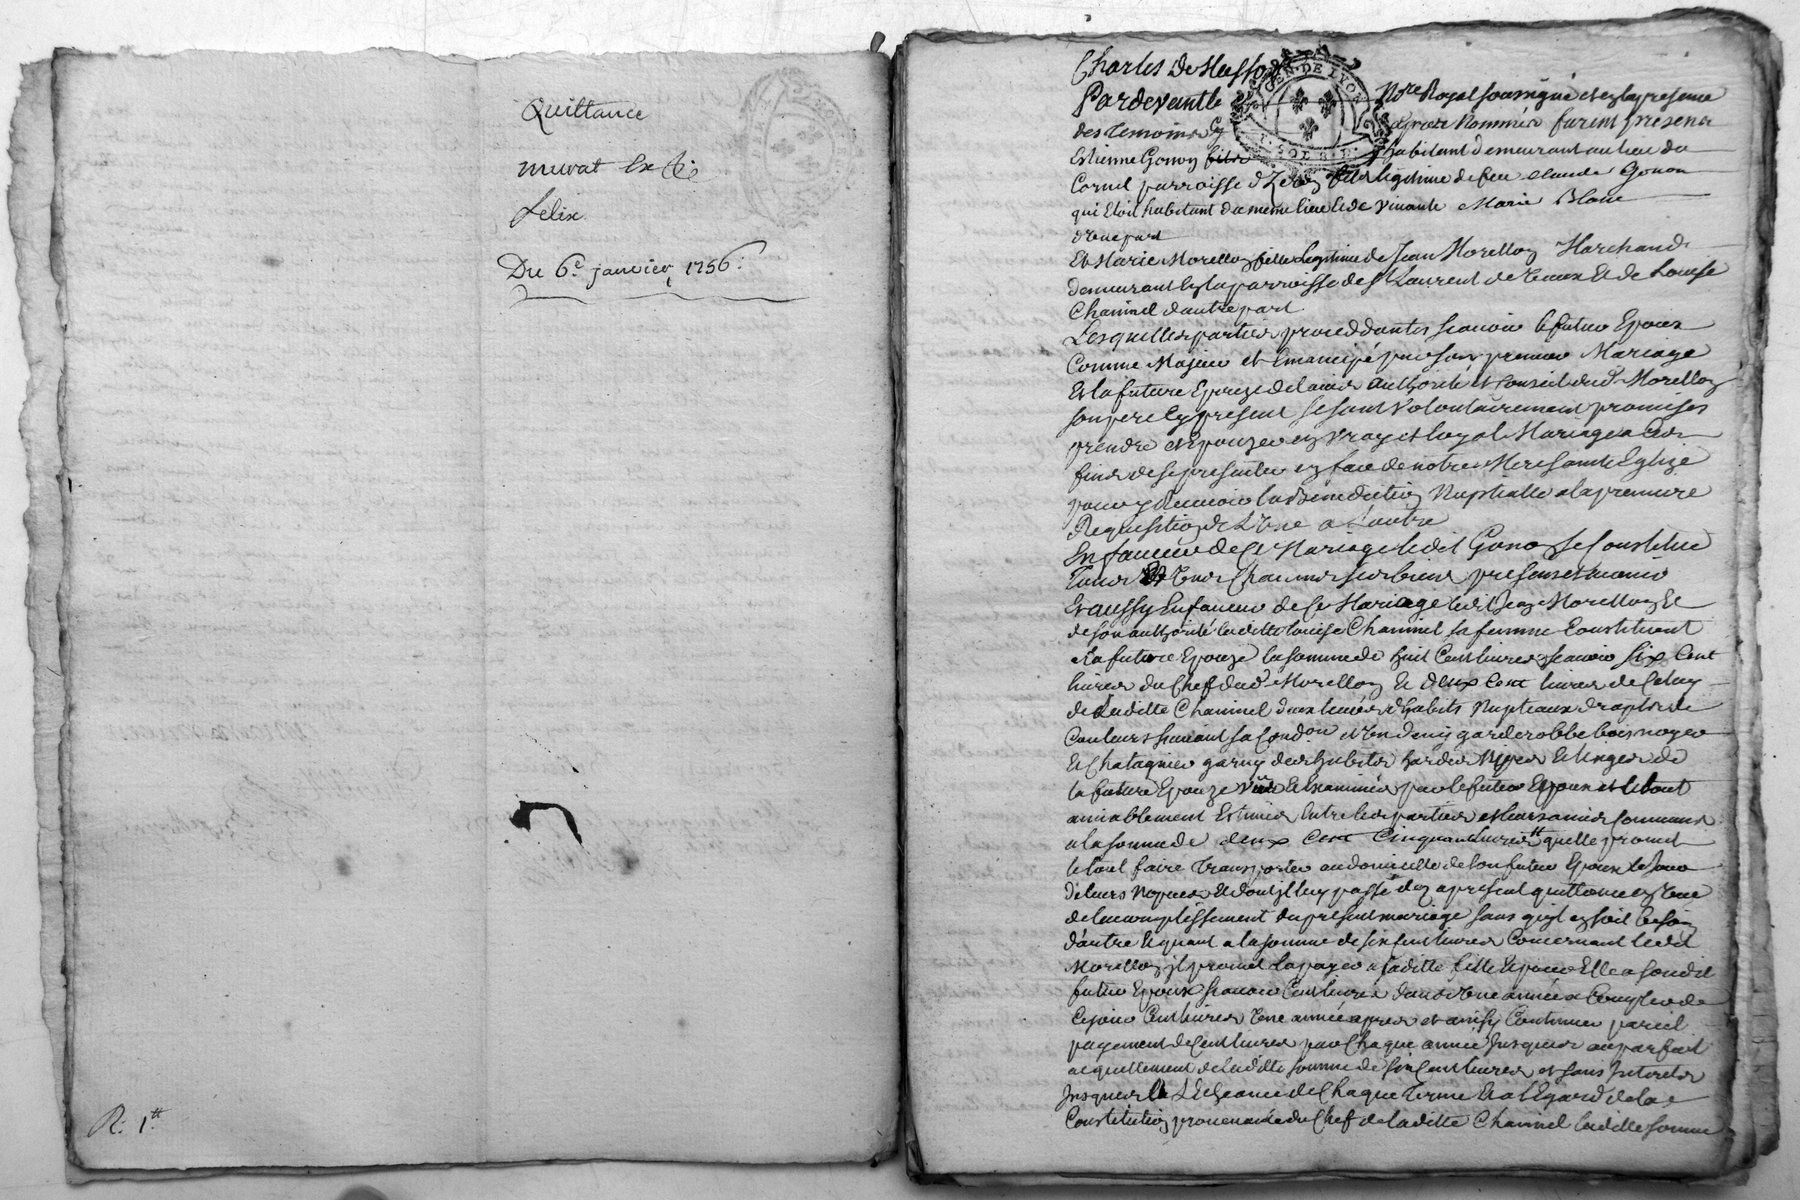 Quittance
murat et
Felix
Du 6e janvier 1756.
R. 1tt
GEN. DE LYON
SOLS
Charles De Masso
Pardevant le Nore Royal soussigné et en la presence
des temoins cy apres Nommés furent presens
Estienne Gonon habitant demeurant au lieu du
Cornil parroisse d' fils legitime de feu claude Gonon
qui etoit habitant du meme lieu et de vivante Marie Blanc
d'une part
Et Marie Morellon fille Legitime de Jean Morellon Marchand
demeurant en la parroisse de St Laurent de et de Louise
Chaninel d'autre part
Lesquelles parties proceddantes scavoir le futur Epoux
Comme Majeur et Emancipé par son premier Mariage
Et la future Epouze de lavis authorité et conseil dud. Morellon
son pere cy present se sont volontairement promises
prendre et Epouzer en vray et loyal Mariage a ces
fins de se presenter en face de notre Mere sainte Eglize
pour y recevoir la Benediction Nuptialle a la premiere
Requisition de L'une a L'autre
En faveur de Ce Mariage ledit Gonon se Constitue
tous et uns Chacuns ses biens presens et avenir
Et aussy En faveur de Ce Mariage ledit Jean Morellon Et
de son authorité laditte Louise Chaninel sa femme Constituent
a la future Epouze la somme de huit Cent livres scavoir six Cent
livres du Chef dud. Morellon et deux cent livres de Celuy
de Laditte Chaninel deux habits Nuptiaux drap de
Couleurs suivant sa Condon et un demy garderobbe bois noyer
et Chatagnier garny des habits hardes Nipes et linges de
la future Epouze vus et Examinés par le futur Epoux et le tout
amiablement Estimés entre les parties et leurs amis Communs
a la somme de deux Cent Cinquante livres tt quelle promet
le tout faire transporter au domicille de son futur Epoux le jour
de leurs Nopces et dont il luy passe dez a present quittance en vue
de lacomplissement du present mariage sans quil en soit besoin
d'autre Et quant a la somme de six Cent livres Concernant ledit
Morellon il promet la payer a saditte fille Et pour Elle a son dit
futur Epoux scavoir Cent livres dans une année a Compter de
Ce jour Cent livres une année apres et ainsy Continuer pareil
payement de Cent livres par Chaque année jusques au parfait
acquittement de laditte somme de six Cent livres et sans Interets
jusques a L'Echeance de Chaque terme Et a L'Egard de la
Constitution provenante du Chef de laditte Chaninel laditte somme